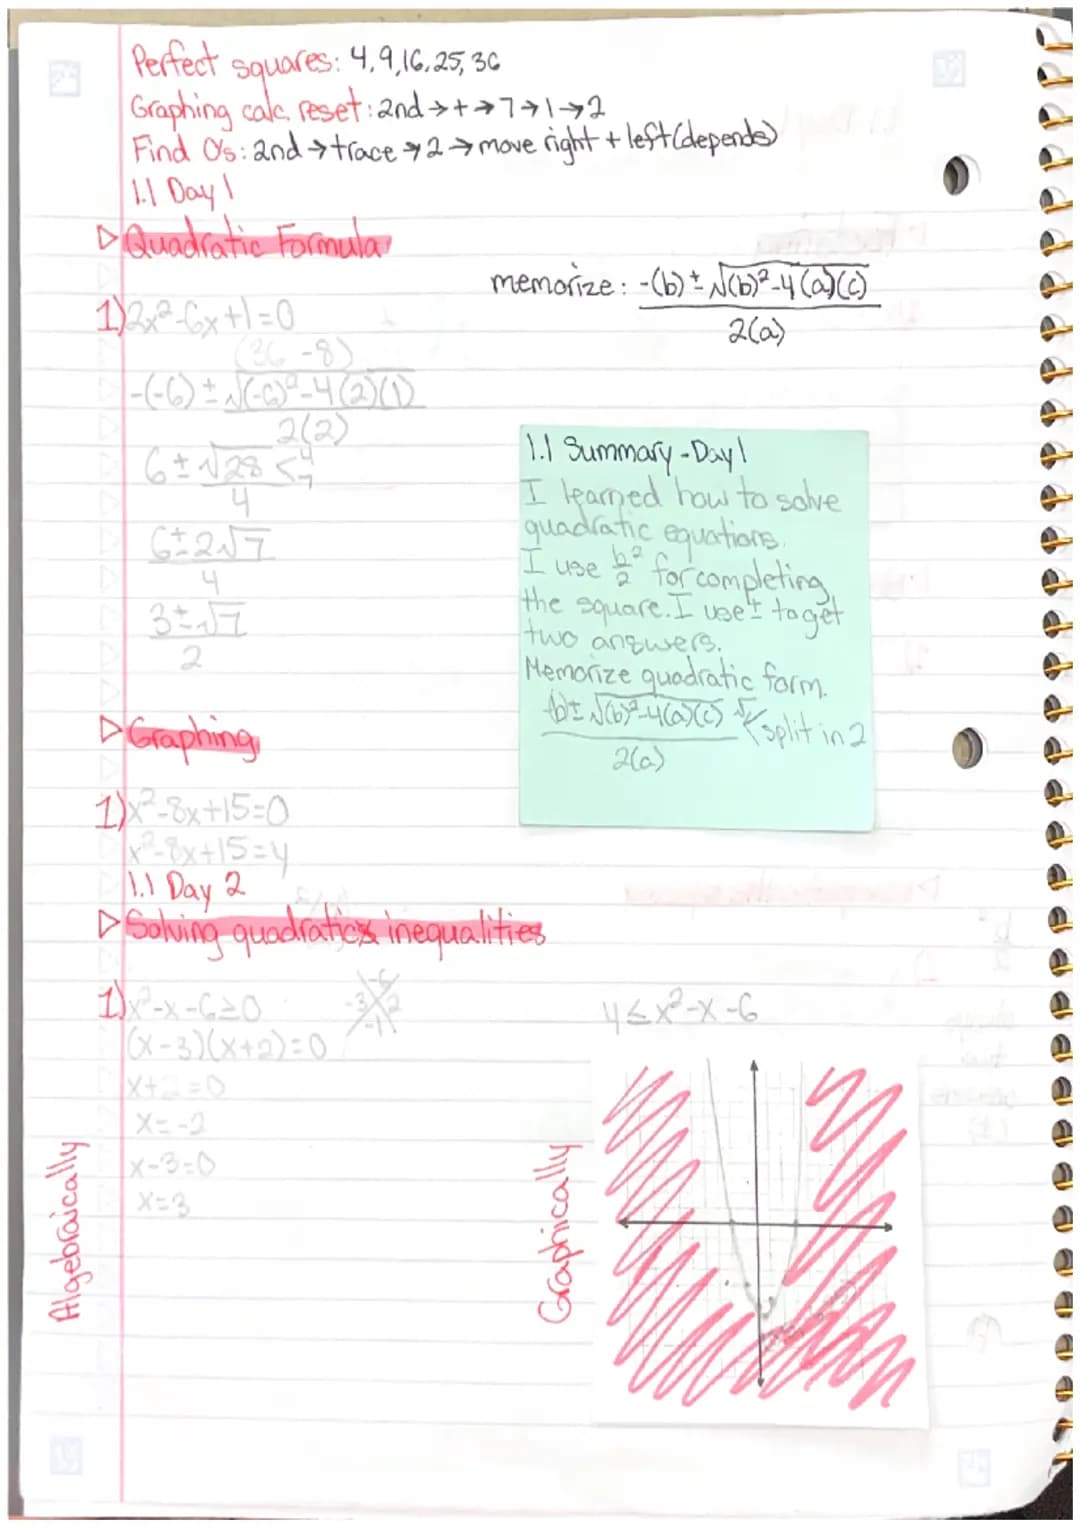 Perfect squares: 4,9,16,25,36
Graphing calc. reset: 2nd→+→7→1→2
Find 0's: 2nd→trace→2→move right + left(depends)
1.1 Day 1
▷Quadratic Formula
memorize: -(b)±√(b)²-4(a)(c)
2(a)
1)2x²-6x+1=0
(36-8)
-(-6)±√(-6)²-4(2)(1)
2(2)
6±√28<4
7
4
6±2√7
4
3±√7
2
1.1 Summary-Day 1
I learned how to solve
quadratic equations.
I use b²
2 for completing
the square. I use ± to get
two answers.
Memorize quadratic form.
-(b)±√(b)²-4(a)(c)
2(a)
split in 2
▷Graphing
1)x²-8x+15=0
x²-8x+15=y
1.1 Day 2
▷Solving quadratics inequalities
1)x²-x-6≥0
-6
-3 2
-1
(x-3)(x+2)=0
x+2=0
x=-2
x-3=0
x=3
Algebraically
y≤x²-x-6
Graphically